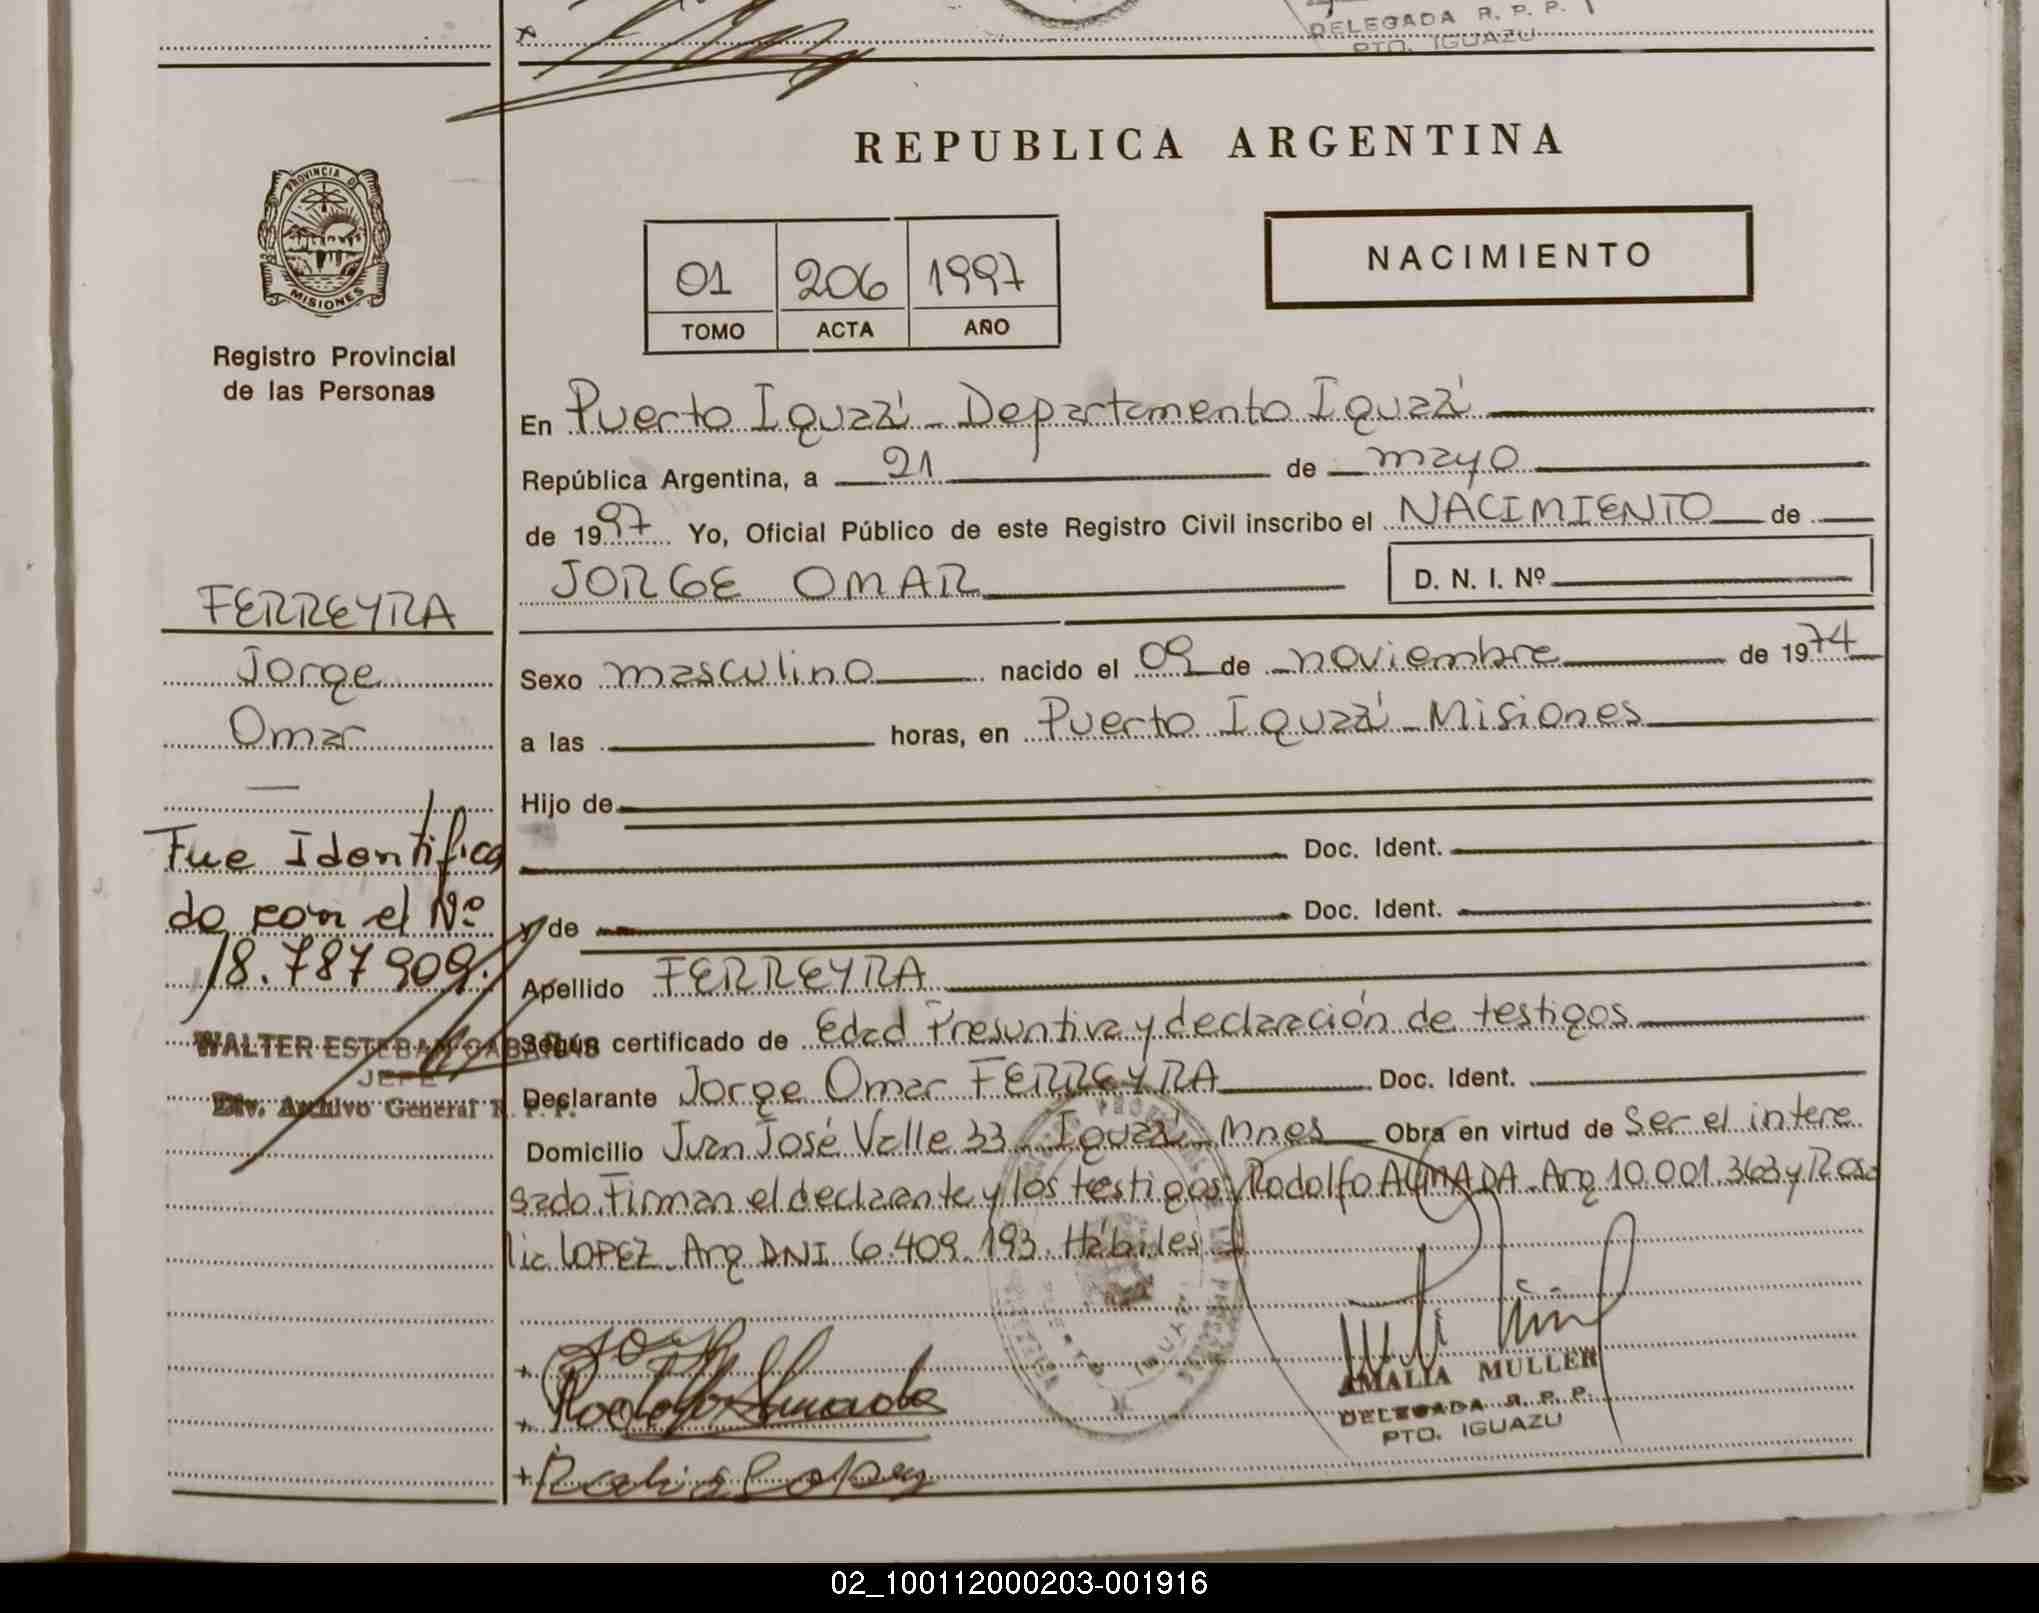 DELEGADA R. P. P.
PTO. IGUAZU
REPUBLICA ARGENTINA
PROVINCIA DE
MISIONES
Registro Provincial
de las Personas
01 206 1997
TOMO ACTA AÑO
NACIMIENTO
En Puerto Iguazú - Departamento Iguazú
República Argentina, a 21 de mayo
de 1997 Yo, Oficial Público de este Registro Civil inscribo el NACIMIENTO de
JORGE OMAR D. N. I. Nº
FERREYRA
Jorge
Omar
Sexo masculino nacido el 09 de noviembre de 1974
a las horas, en Puerto Iguazú - Misiones
Hijo de
Doc. Ident.
y de Doc. Ident.
Fue Identifica
do con el Nº
18.787909.
WALTER ESTEBAN
JEFE
Div. Archivo General R. P. P.
Apellido FERREYRA
Según certificado de Edad Presuntiva y declaración de testigos
Declarante Jorge Omar FERREYRA Doc. Ident.
Domicilio Juan José Valle 33 - Iguazú - Mnes Obra en virtud de Ser el intere
sado. Firman el declarante y los testigos Rodolfo ALMADA - Arg 10.001.363 y Rosa
lia LOPEZ - Arg DNI 6.409.193. Hábiles
Rodolfo Almada
AMALIA MULLER
DELEGADA R. P. P.
PTO. IGUAZU
02_100112000203-001916